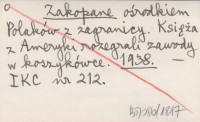 Zakopane ośrodkiem
Polaków z zagranicy. Księża
z Ameryki rozegrali zawody
w koszykówce. 1938. —
IKC nr 212.